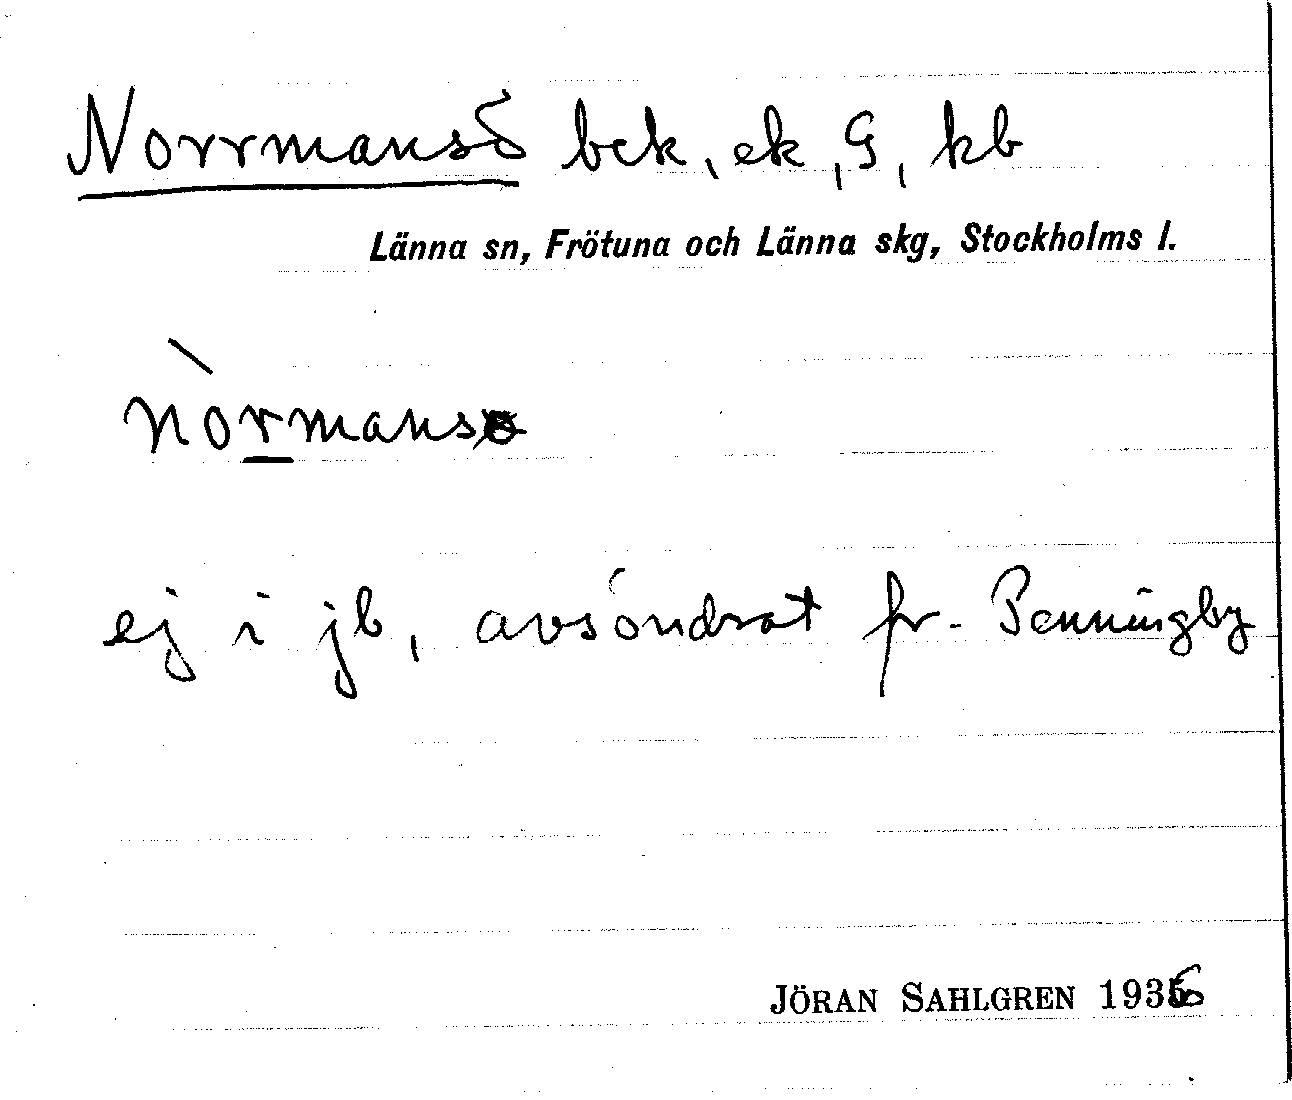 Norrmansö bek, ek, G, kb
Länna sn, Frötuna och Länna skg, Stockholms l.
nòrmansø
ej i jb, avsöndrat fr. Penningby
JÖRAN SAHLGREN 1936